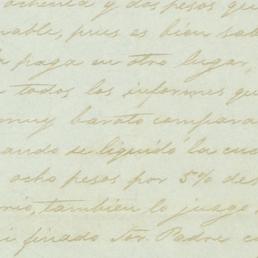 ochenta y dos pesos que
nable, pues es bien sab
paga en otro lugar,
todos los informes qu
muy barato compara
ando se liquidó la cue
ocho pesos por 5% des
rio, tambien lo juzgo
i finado Sor. Padre c